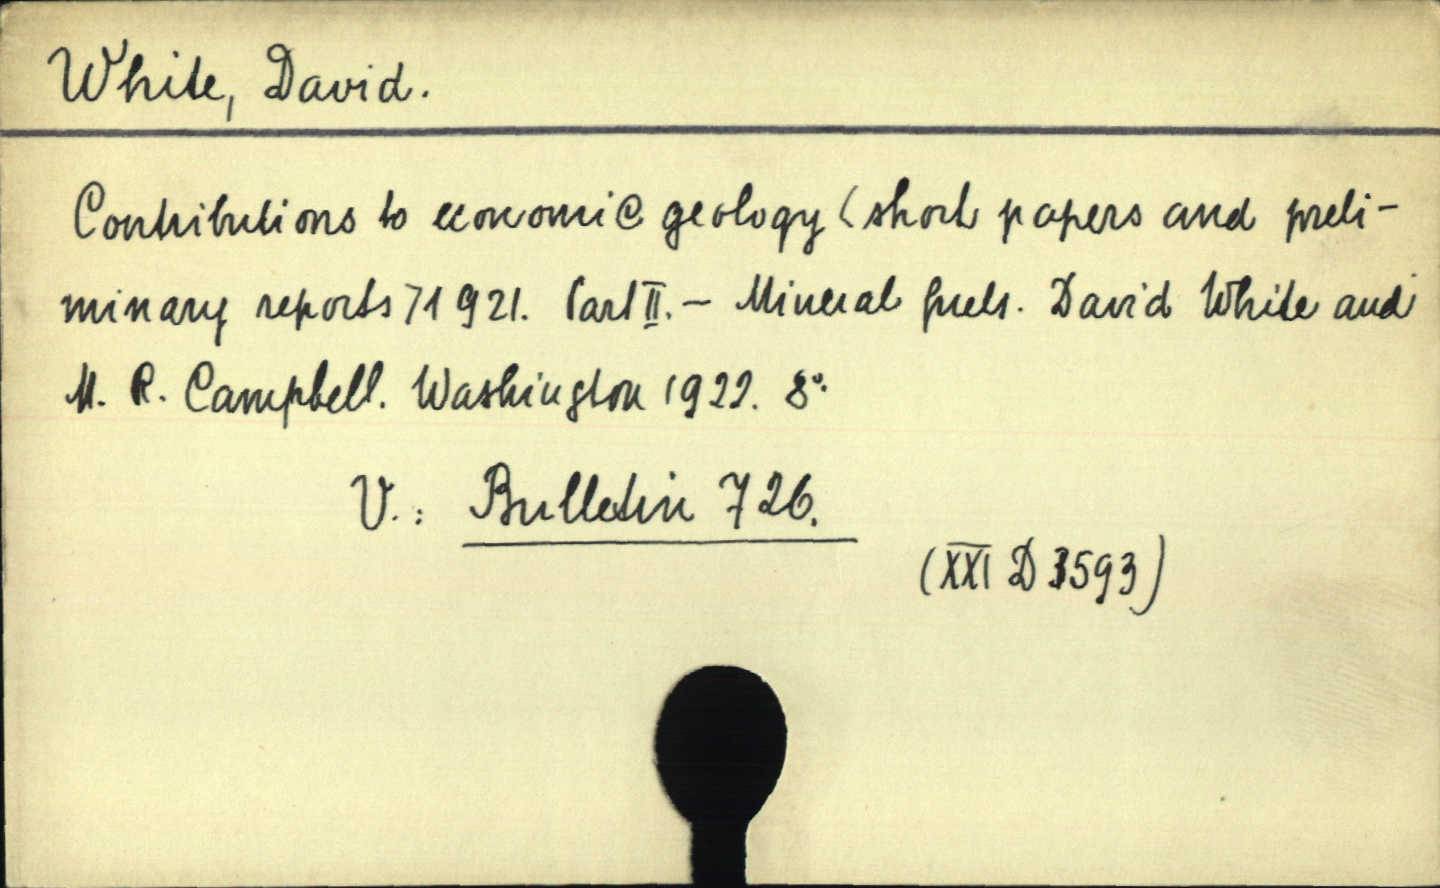 White, David.
Contributions to economic geology (short papers and preli-
minary reports) 1921. Part II. - Mineral fuels. David White and
M. R. Campbell. Washington 1922. 8°.
V.: Bulletin 726.
(XXI D 3593)